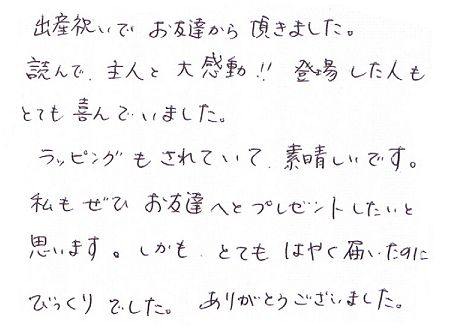 出産祝いで お友達から 頂きました。
読んで、主人と 大感動!! 登場した人も
とても喜んでいました。
ラッピングもされていて、素晴しいです。
私もぜひ お友達へとプレゼントしたいと
思います。しかも、とても はやく届いたのに
びっくりでした。ありがとうございました。